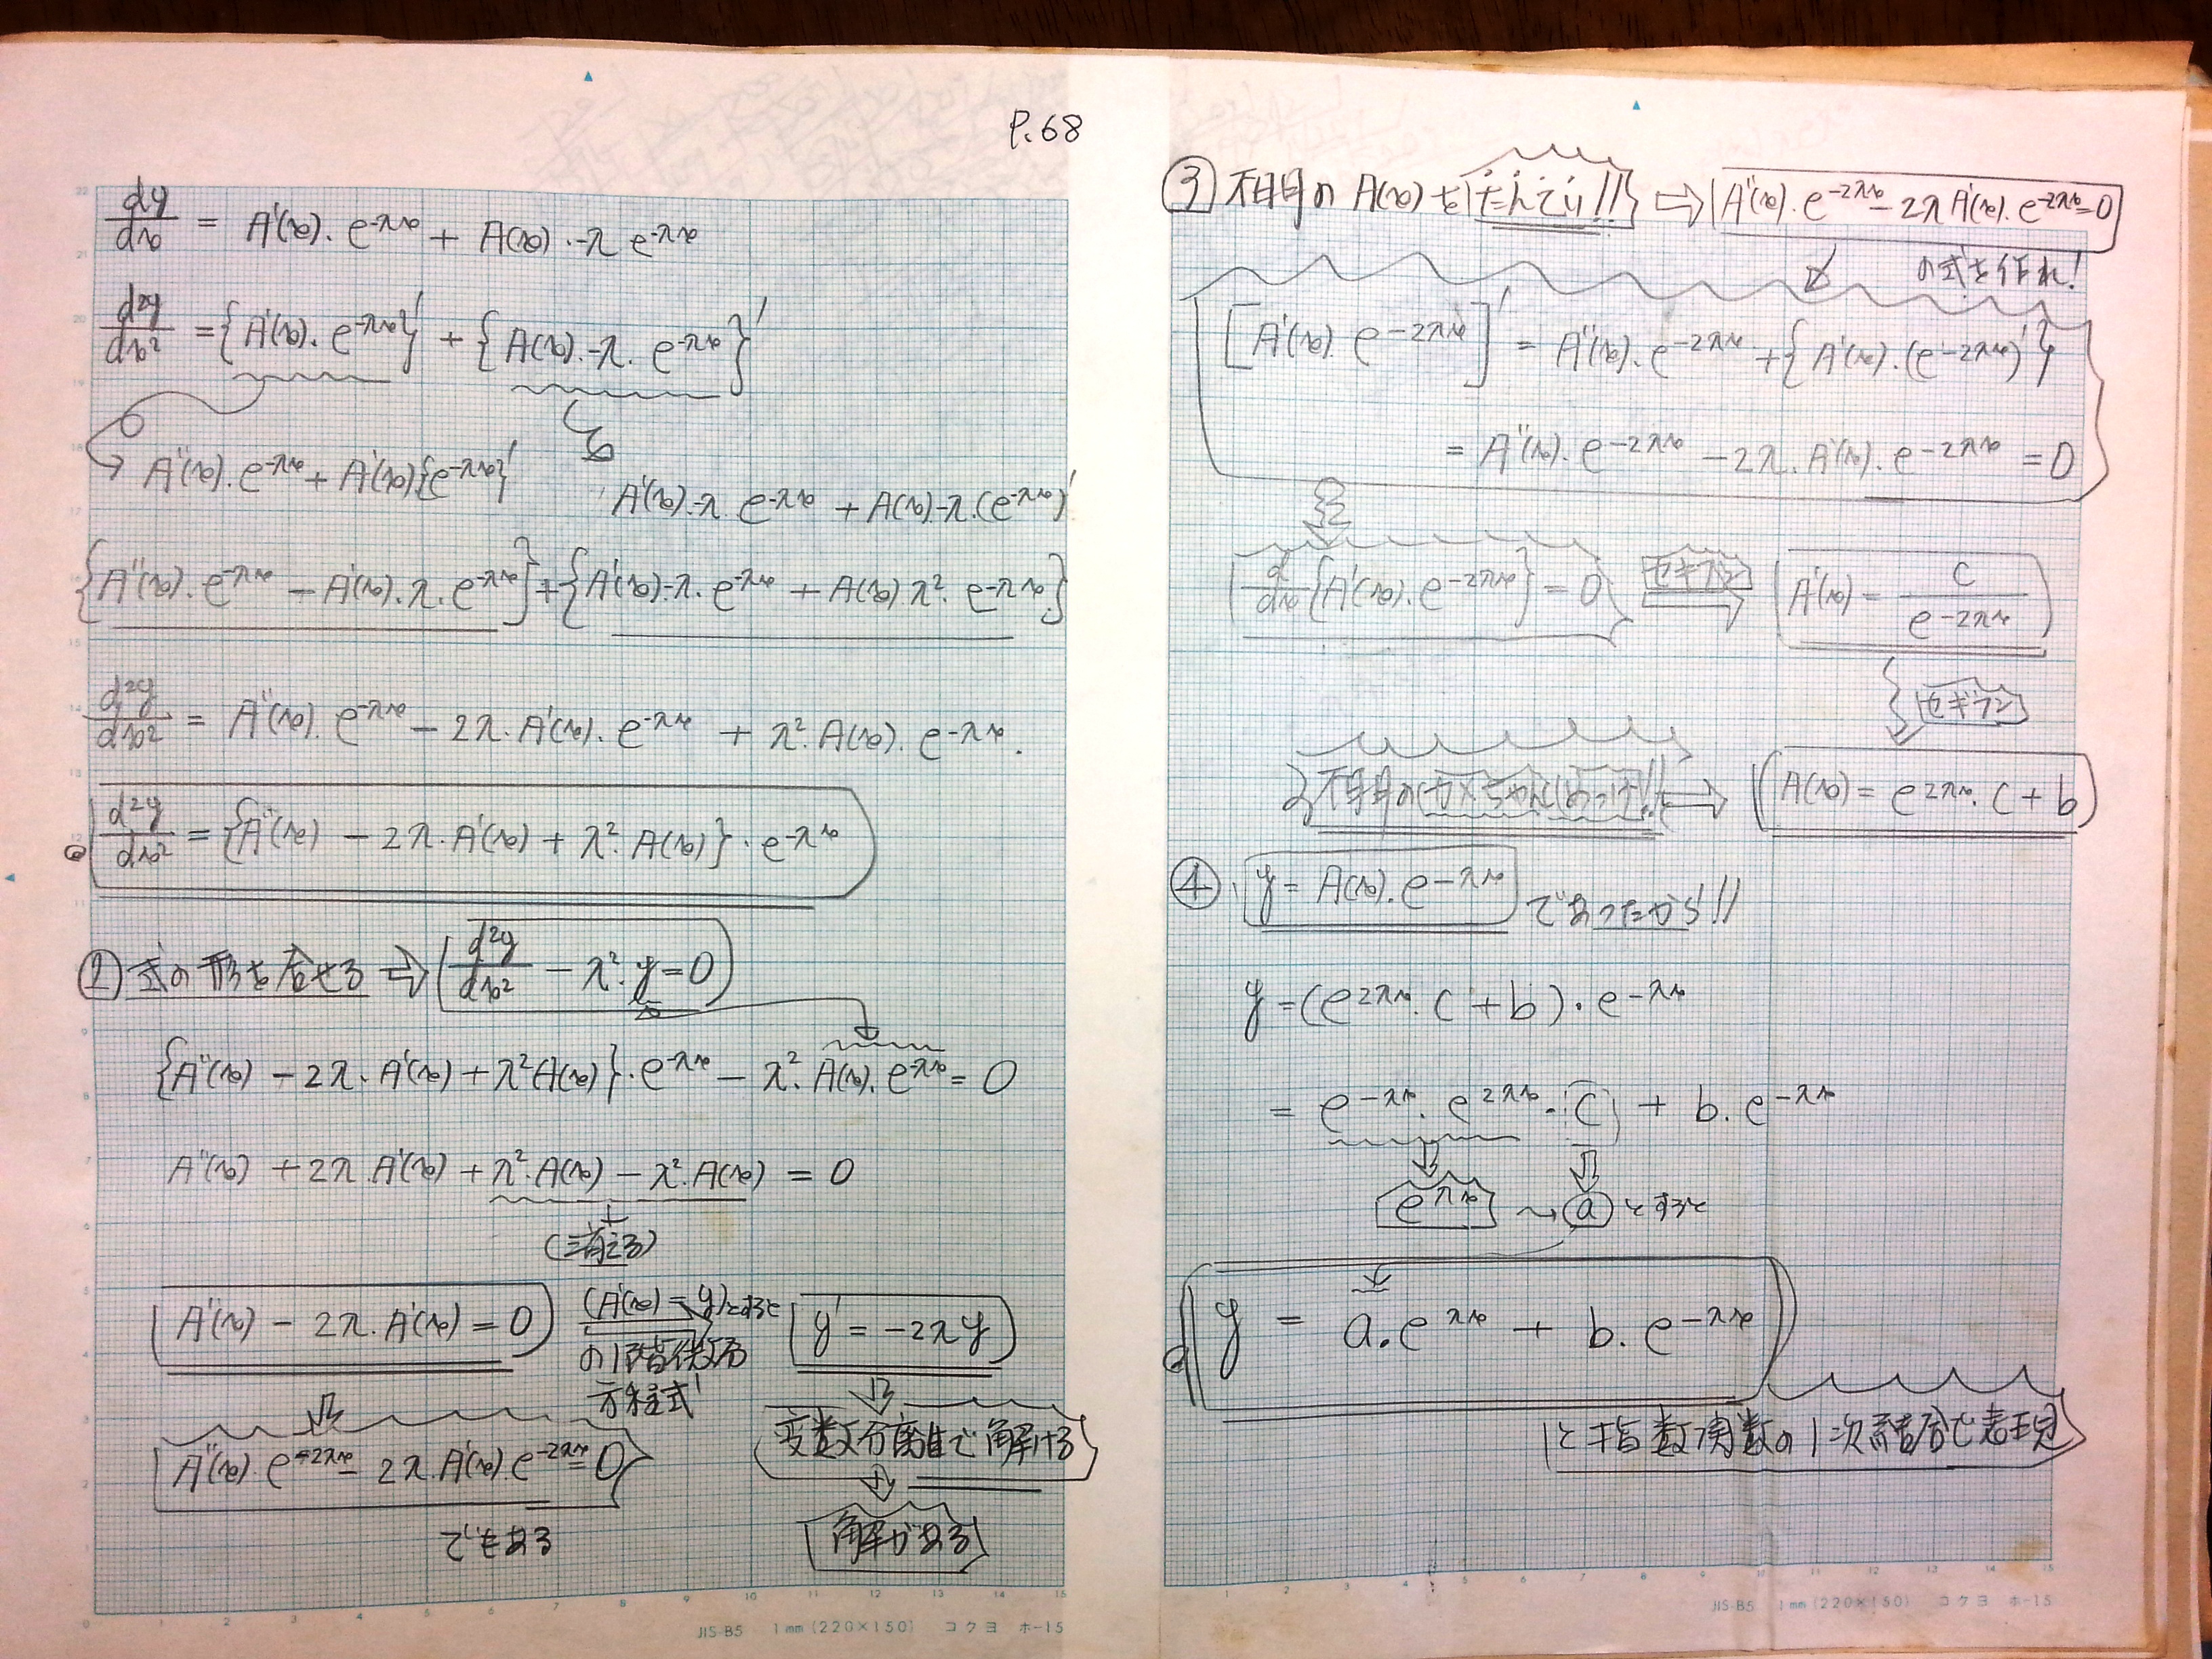 P.68
dy/dx = A'(x)・e^-λx + A(x)・-λ e^-λx
d²y/dx² = {A'(x)・e^-λx}' + {A(x)・-λ・e^-λx}'
A''(x)・e^-λx + A'(x){e^-λx}'
A'(x)・-λ e^-λx + A(x)・-λ・(e^-λx)'
{A''(x)・e^-λx - A'(x)・λ・e^-λx} + {A'(x)・-λ・e^-λx + A(x)・λ²・e^-λx}
d²y/dx² = A''(x)・e^-λx - 2λ・A'(x)・e^-λx + λ²・A(x)・e^-λx.
d²y/dx² = {A''(x) - 2λ・A'(x) + λ²・A(x)}・e^-λx
② 式の形を合せる ⇒ d²y/dx² - λ²・y = 0
{A''(x) - 2λ・A'(x) + λ²A(x)}・e^-λx - λ²・A(x)・e^-λx = 0
A''(x) + 2λ・A'(x) + λ²・A(x) - λ²・A(x) = 0
(消える)
A''(x) - 2λ・A'(x) = 0
(A'(x) = y)とすると
の1階微分
方程式
y' = -2λy
変数分離で解ける
解がある
A''(x)・e^-2λx - 2λ・A'(x)・e^-2λx = 0
でもある
③ 不明の A(x) を たんてい!! ⇒ A''(x)・e^-2λx - 2λ A'(x)・e^-2λx = 0
の式を作れ!
[A'(x)・e^-2λx]' = A''(x)・e^-2λx + {A'(x)・(e^-2λx)'}
= A''(x)・e^-2λx - 2λ・A'(x)・e^-2λx = 0
d/dx {A'(x)・e^-2λx} = 0 セキブン ⇒ A'(x) = C / e^-2λx
セキブン
不明の ⇒ A(x) = e^2λx・C + b
④ y = A(x)・e^-λx であったから!!
y = (e^2λx・C + b)・e^-λx
= e^-λx・e^2λx・C + b・e^-λx
e^λx → a とすると
y = a・e^λx + b・e^-λx
と指数関数の1次結合で表現
JIS-B5 1mm (220×150) コクヨ ホ-15
JIS-B5 1mm (220×150) コクヨ ホ-15